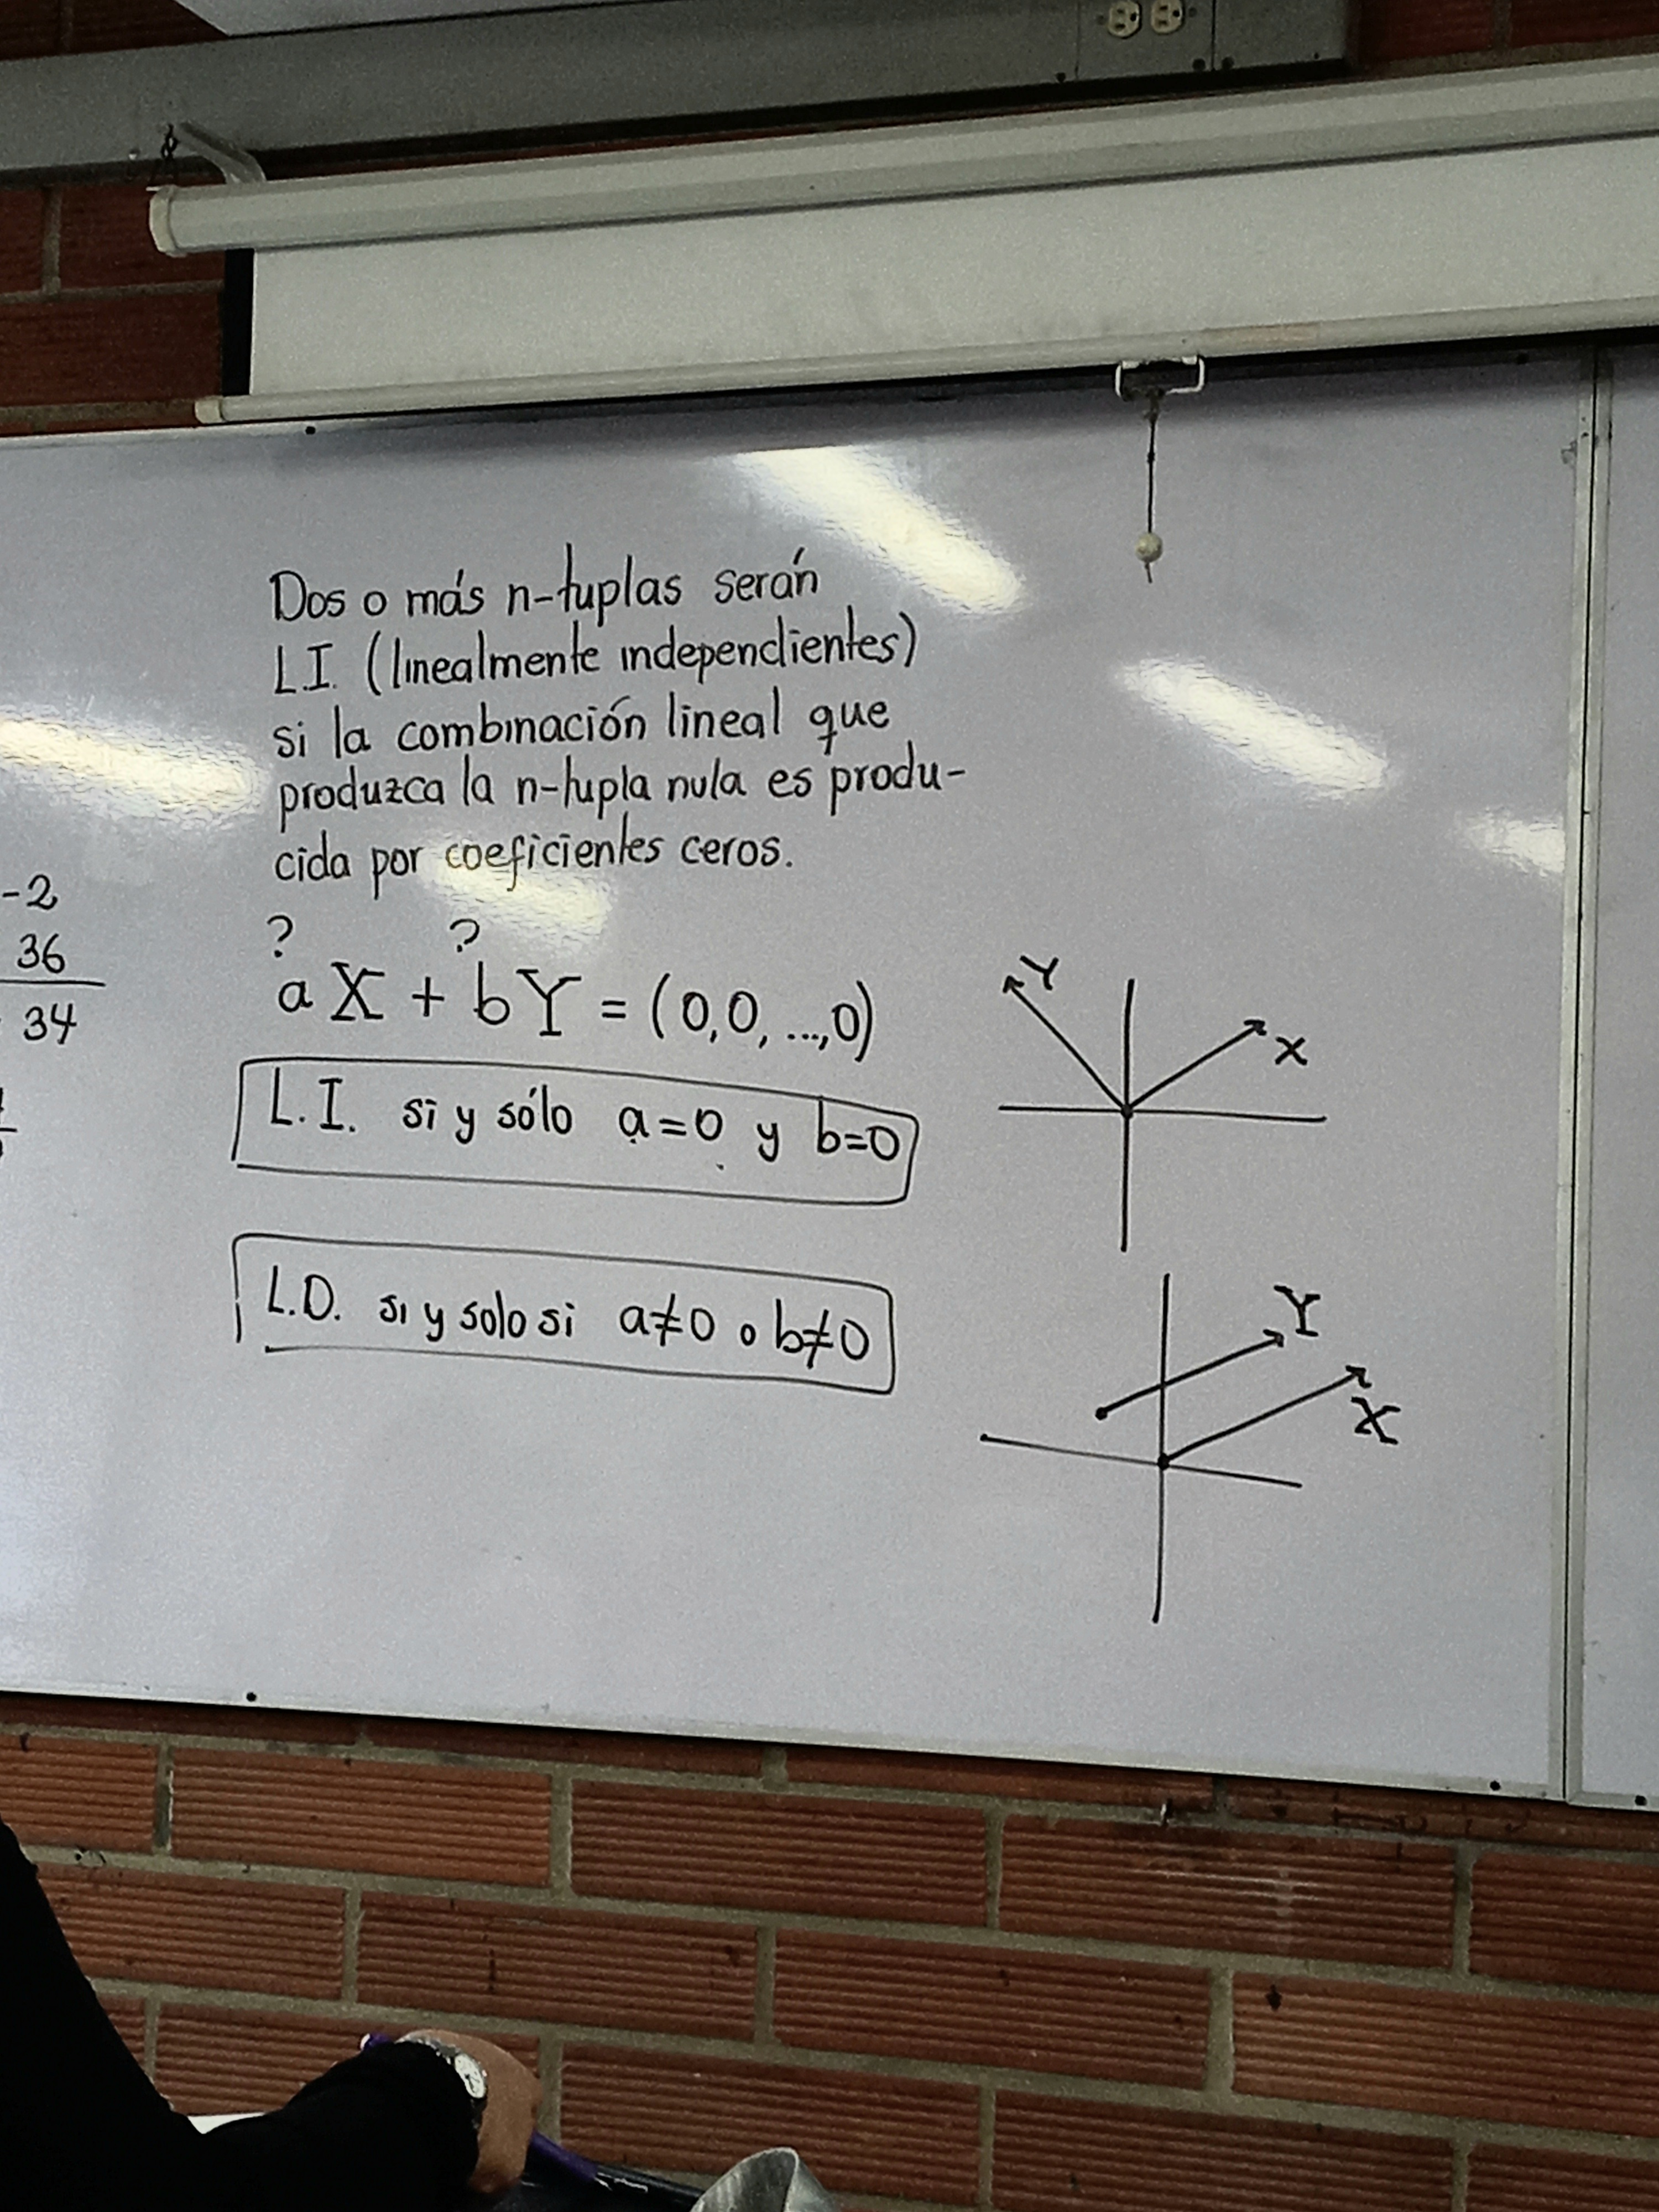 Dos o más n-tuplas serán
L.I. (linealmente independientes)
si la combinación lineal que
produzca la n-tupla nula es produ-
cida por coeficientes ceros.
? ?
a X + b Y = (0,0, ...,0)
L.I. si y sólo a=0 y b=0
L.D. si y solo si a≠0 o b≠0
-2
36
34
Y
X
Y
X